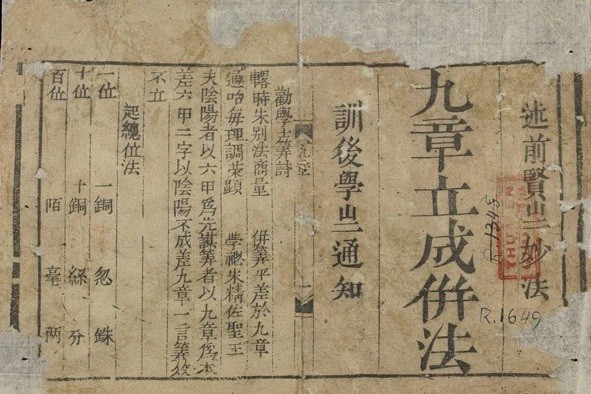 述前賢㞢妙法
九章立成併法
訓後學㞢通知
九章
勸學士筭詩
時朱別法商量 併筭平差於九章
通哈每理調茶顕 學襏朱精佐聖王
夫陰陽者以六甲爲先講筭者以九章爲本
差六甲二字以陰陽不成差九章一言筭效
不立
起總位法
一位 一銅 忽 銖
十位 十銅 絲 分
百位 陌 毫 两
R.1649